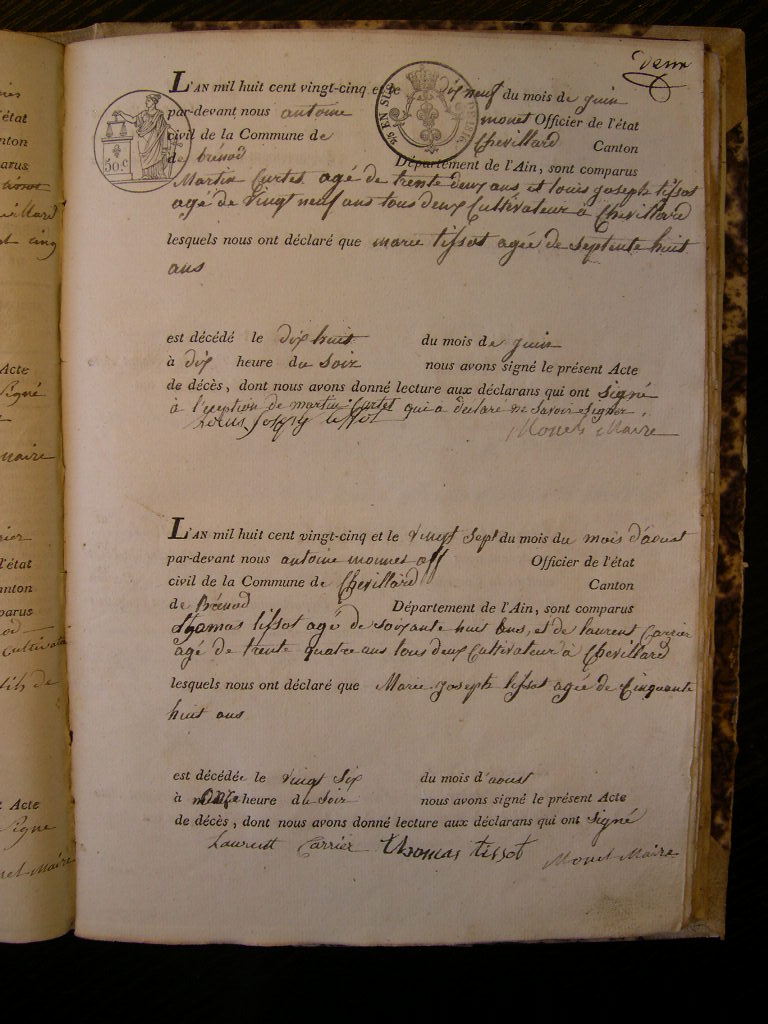 deux
L'AN mil huit cent vingt-cinq et le dix neuf du mois de juin
par-devant nous antoine monet Officier de l'état
civil de la Commune de Chevillard Canton
de brénod Département de l'Ain, sont comparus
Martin Curtet agé de trente deux ans, et louis joseph tissot
agé de vingt neuf ans tous deux Cultivateur à Chevillard
lesquels nous ont déclaré que marie tissot agée de septente huit
ans
est décédé le dix huit du mois de juin
à dix heure du Soir nous avons signé le présent Acte
de décès, dont nous avons donné lecture aux déclarans qui ont signé
à l'exeption de martin Curtet qui a declaré ne Savoir Signer.
Louis Joseph tissot Monet Maire
L'AN mil huit cent vingt-cinq et le vingt Sept du mois du mois d'aoust
par-devant nous antoine monnet off Officier de l'état
civil de la Commune de Chevillard Canton
de Brénod Département de l'Ain, sont comparus
thomas tissot agé de soixante huit ans, et de laurent Carrier
agé de trente quatre ans tous deux Cultivateur à Chevillard
lesquels nous ont déclaré que Marie joseph tissot agée de Cinquante
huit ans
est décédée le vingt Six du mois d'aoust
à onze heure du Soir nous avons signé le présent Acte
de décès, dont nous avons donné lecture aux déclarans qui ont Signé
Laurent Carrier thomas tissot Monet Maire
50c
EN SUS